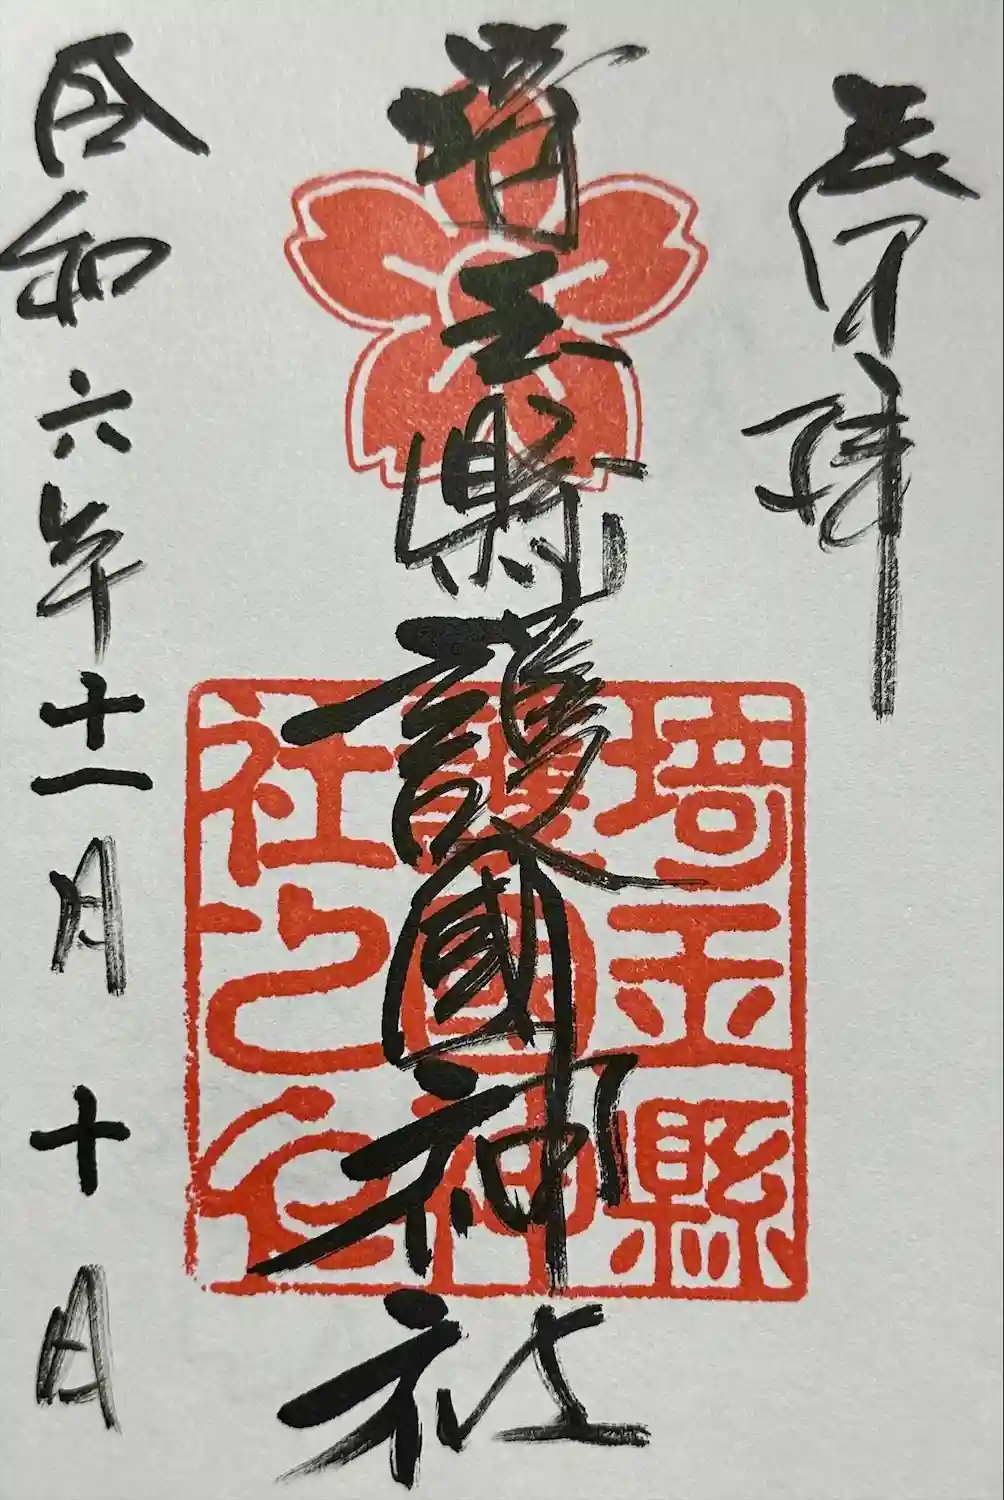 奉拝
埼玉縣護國神社
令和六年十一月十日
埼玉縣
護國神
社之印